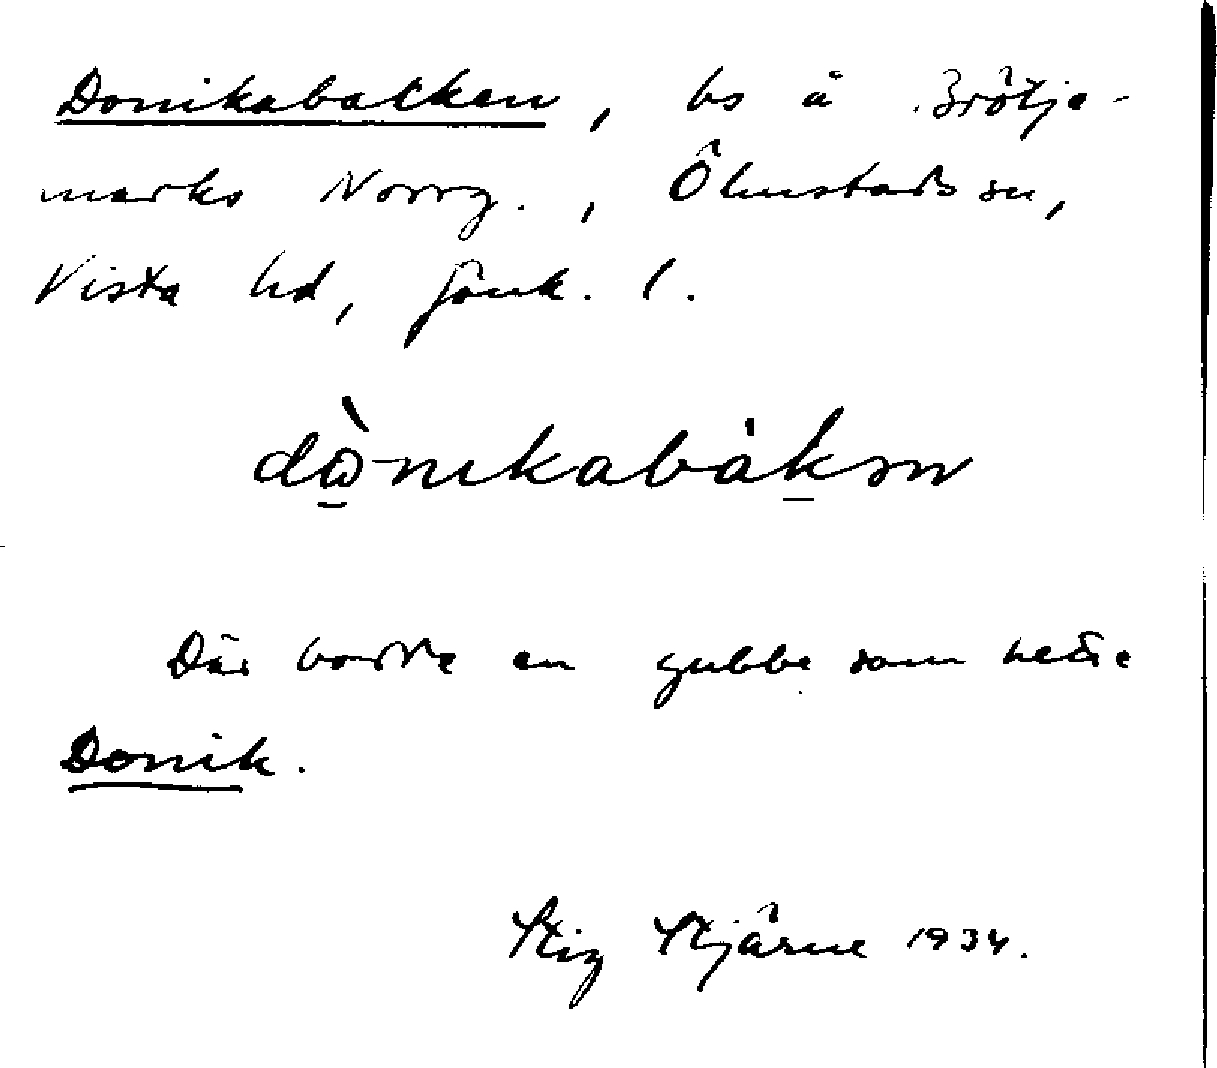 Donikabacken, bs å Brötje-
marks Norrg., Ölmstads sn,
Vista hd, Jönk. l.
dὼnikabàkən
Där bodde en gubbe som hette
Donik.
Stig Stjärne 1934.